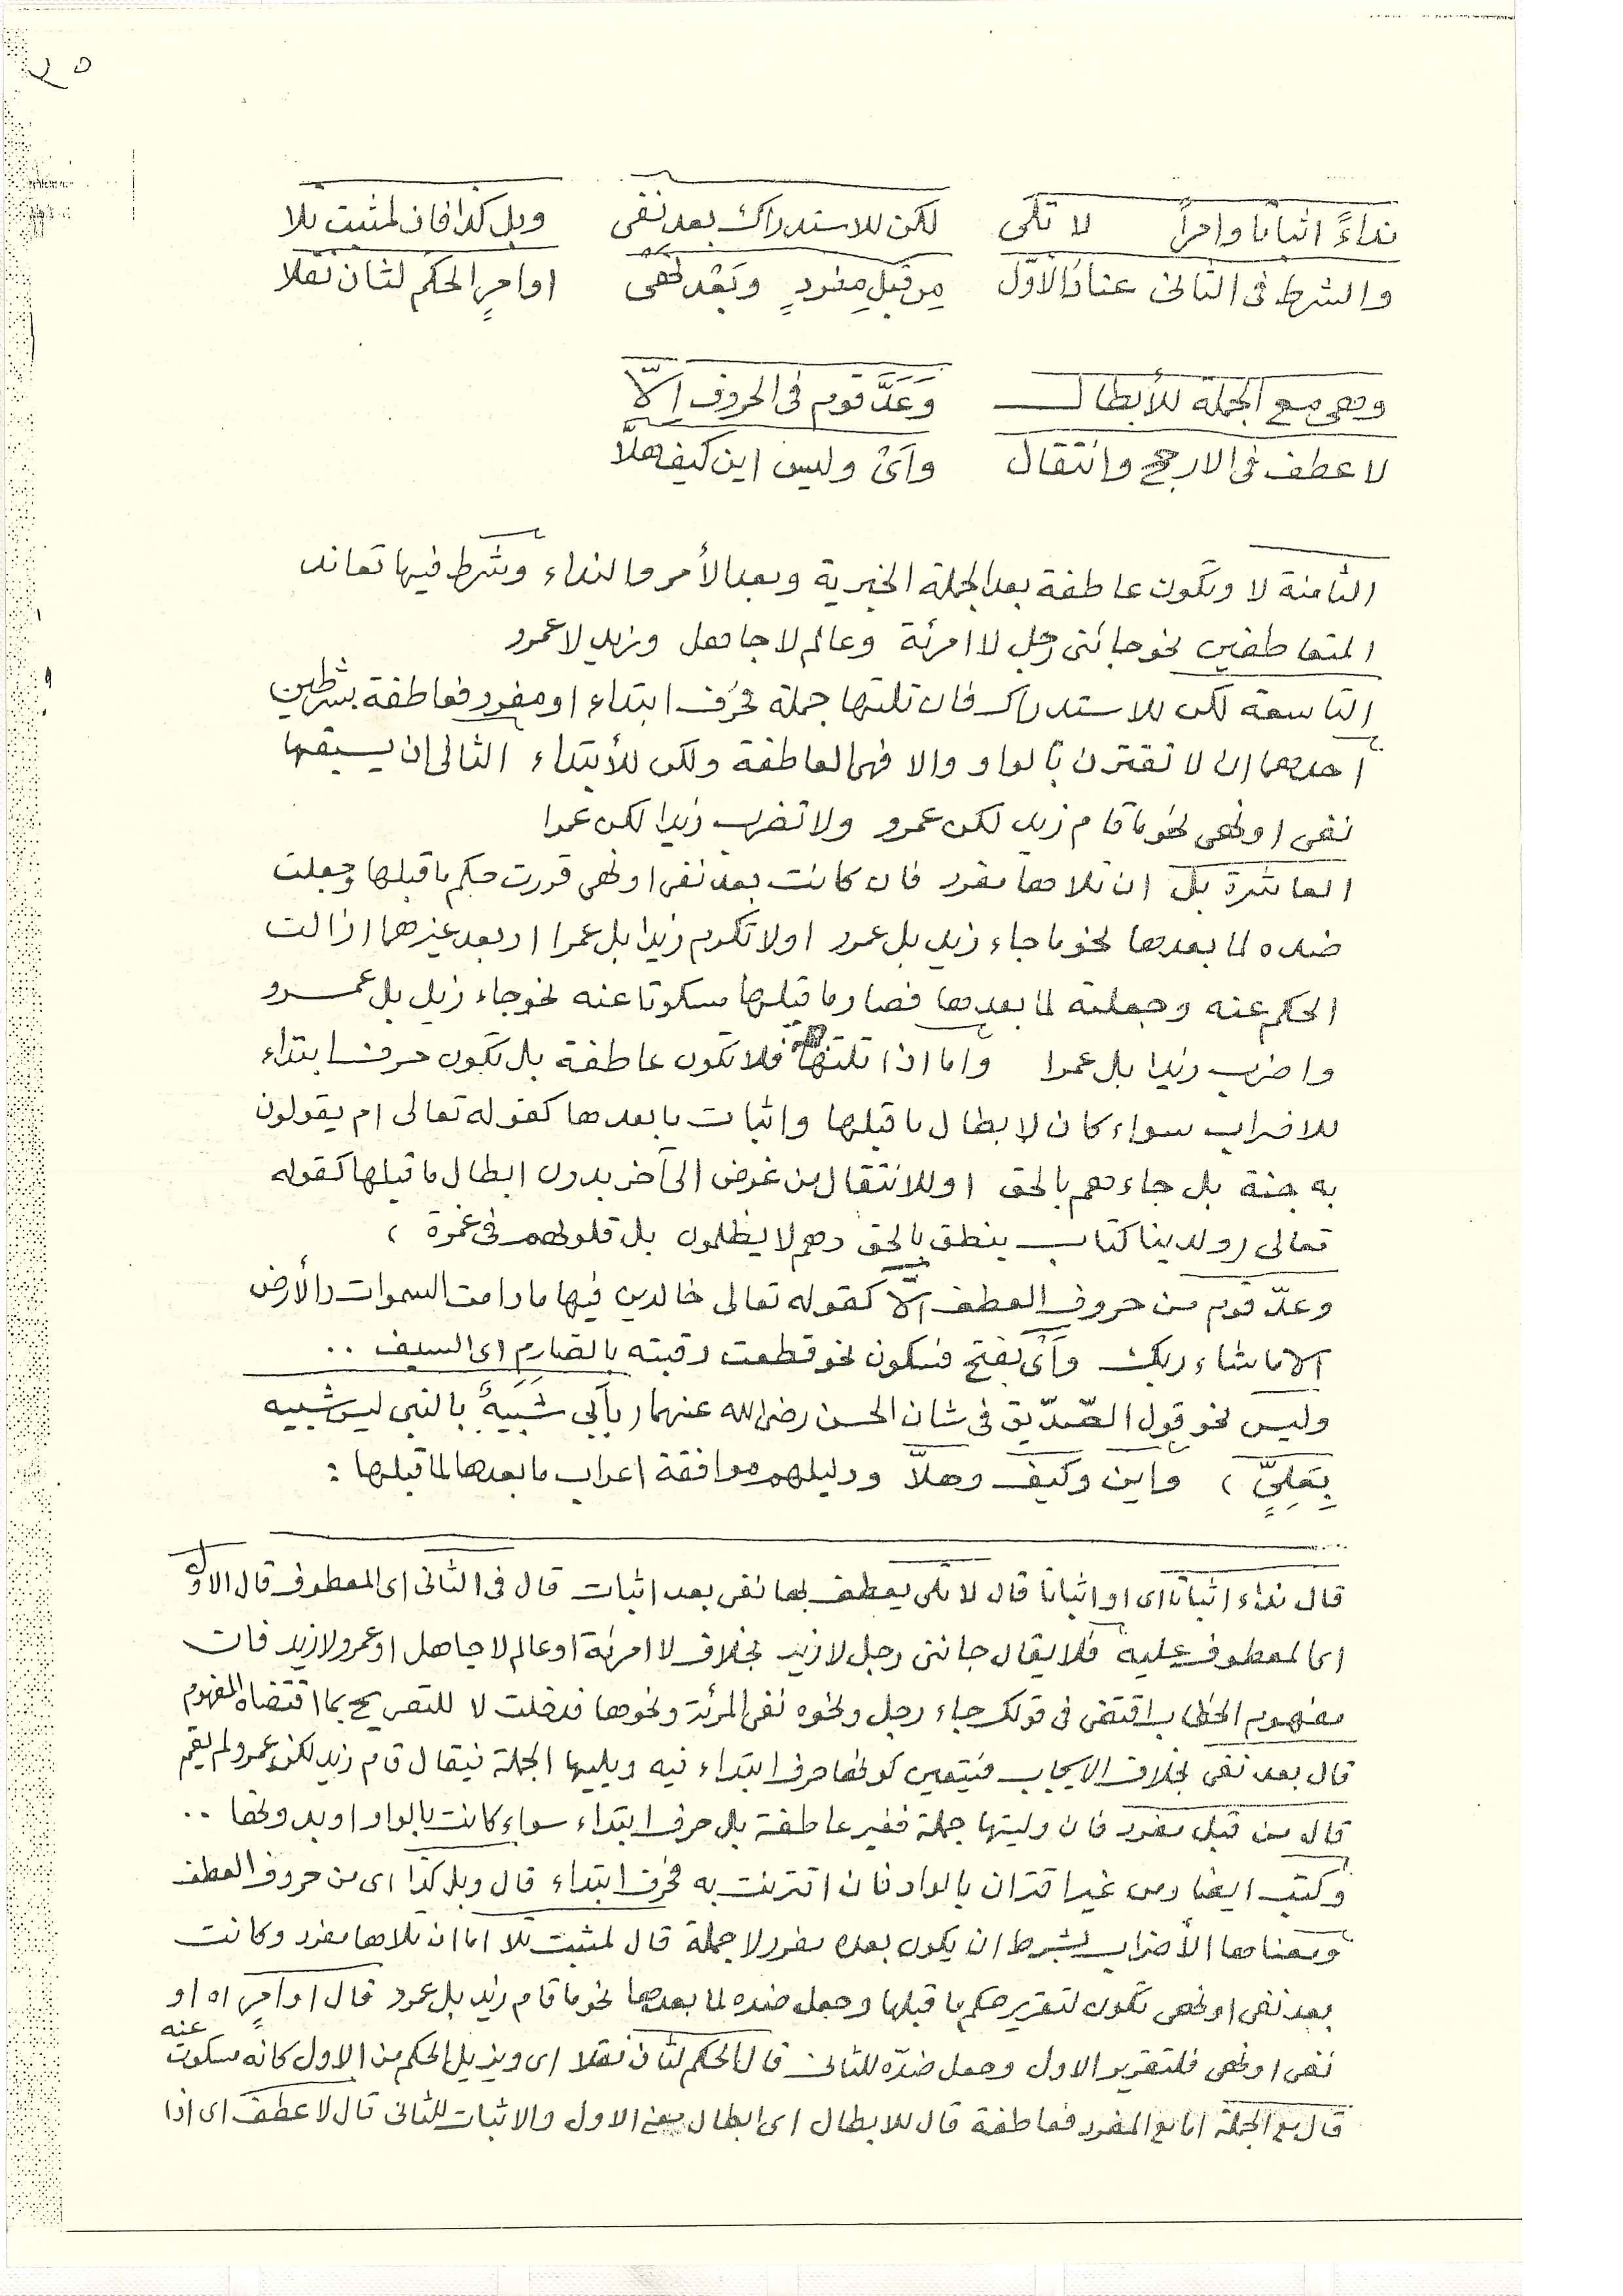 نداءً اثباتا وامراً لا تلى لكن للاستدراك بعد نفى وبل كذا فان لمثبت تلا
والشرط فى الثانى عناد الاوّل مِن قبلِ مفردٍ وبَعْد نهى او امرٍ الحكم لثان نقلا
وهى مع الجملة للأبطال وَعَدَّ قوم فى الحروف إلّا
لا عطف فى الارجح وانتقال وأىْ وليس اين كيف هلّا
الثامنة لا وتكون عاطفة بعد الجملة الخبرية وبعد الأمر والنداء وشرط فيها تعاند
المتعاطفين نحو جائنى رجل لا امرئة وعالم لا جاهل وزيد لا عمرو
التاسعة لكن للاستدراك فان تلتها جملة فحرف ابتداء او مفرد فعاطفة بشرطين
أحدهما ان لا تقترن بالواو والا فهى العاطفة ولكن للأبتداء الثانى ان يسبقها
نفى او نهى نحو ما قام زيد لكن عمرو ولا تضرب زيدا لكن عمرا
العاشرة بل ان تلاها مفرد فان كانت بعد نفى او نهى قررت حكم ما قبلها وجعلت
ضده لما بعدها نحو ما جاء زيد بل عمرو او لا تكرم زيدا بل عمرا او بعد غيرهما ازالت
الحكم عنه وجعلته لما بعدها فصار ما قبلها مسكوتا عنه نحو جاء زيد بل عمرو
واضرب زيدا بل عمرا واما اذا تلتها فلا تكون عاطفة بل تكون حرف ابتداء
للاضراب سواء كان لابطال ما قبلها واثبات ما بعدها كقوله تعالى ام يقولون
به جنة بل جاءهم بالحق او للانتقال من غرض الى آخر بدون ابطال ما قبلها كقوله
تعالى (ولدينا كتاب ينطق بالحق وهم لا يظلمون بل قلوبهم فى غمرة)
وعدّ قوم من حروف العطف إلّا كقوله تعالى خالدين فيها ما دامت السموات والأرض
الا ما شاء ربك وأىْ بفتح فسكون نحو قطعت رقبته بالصارم اى السيف ..
وليس نحو قول الصّدّيق فى شان الحسن رضى الله عنهما (بأبى شَبِيَهٌ بالنبى ليس شبيه
بِعَلِيٍّ) واين وكيف وهلّا ودليلهم موافقة اعراب ما بعدها لما قبلها :
قال نداء اثباتا اى او اثباتا قال لا تلى يعطف بها نفى بعد اثبات قال فى الثانى اى المعطوف قال الاول
اى المعطوف عليه فلا يقال جائنى رجل لا زيد بخلاف لا امرئة او عالم لا جاهل او عمرو لا زيد فان
مفهوم الخطاب اقتضى فى قولك جاء رجل ونحوه نفى المرئة ونحوها فدخلت لا للتصريح بما اقتضاه المفهوم
قال بعد نفى بخلاف الايجاب فيتعين كونها حرف ابتداء فيه ويليها الجملة فيقال قام زيد لكن عمرو لم يقم
قال من قبل مفرد فان وليتها جملة فغير عاطفة بل حرف ابتداء سواء كانت بالواو او بدونها ..
وكتب ايضا ومن غير اقتران بالواو فان اقترنت به فحرف ابتداء قال وبل كذا اى من حروف العطف
ومعناها الأضراب بشرط ان يكون بعده مفرد لا جملة قال لمثبت تلا اما ان تلاها مفرد وكانت
بعد نفى او نهى تكون لتقرير حكم ما قبلها وجعل ضده لما بعدها نحو ما قام زيد بل عمرو قال او امرٍ اه او
نفى او نهى فلتقرير الاول وجعل ضدّه للثانى قال الحكم لثان نقلا اى ويزيل الحكم من الاول كانه مسكوت عنه
قال مع الجملة اما مع المفرد فعاطفة قال للابطال اى ابطال الاول والاثبات للثانى قال لا عطف اى اذا